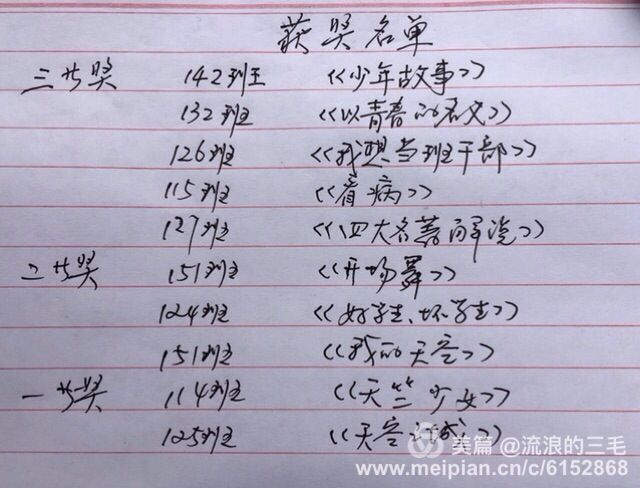 获奖名单
三等奖 142班 《少年故事》
132班 《以青春的名义》
126班 《我想当班干部》
115班 《看病》
127班 《四大名著解说》
二等奖 151班 《开场舞》
124班 《好学生、坏学生》
151班 《我的天空》
一等奖 114班 《天竺少女》
125班 《天空之城》
美篇 @流浪的三毛
www.meipian.cn/c/6152868